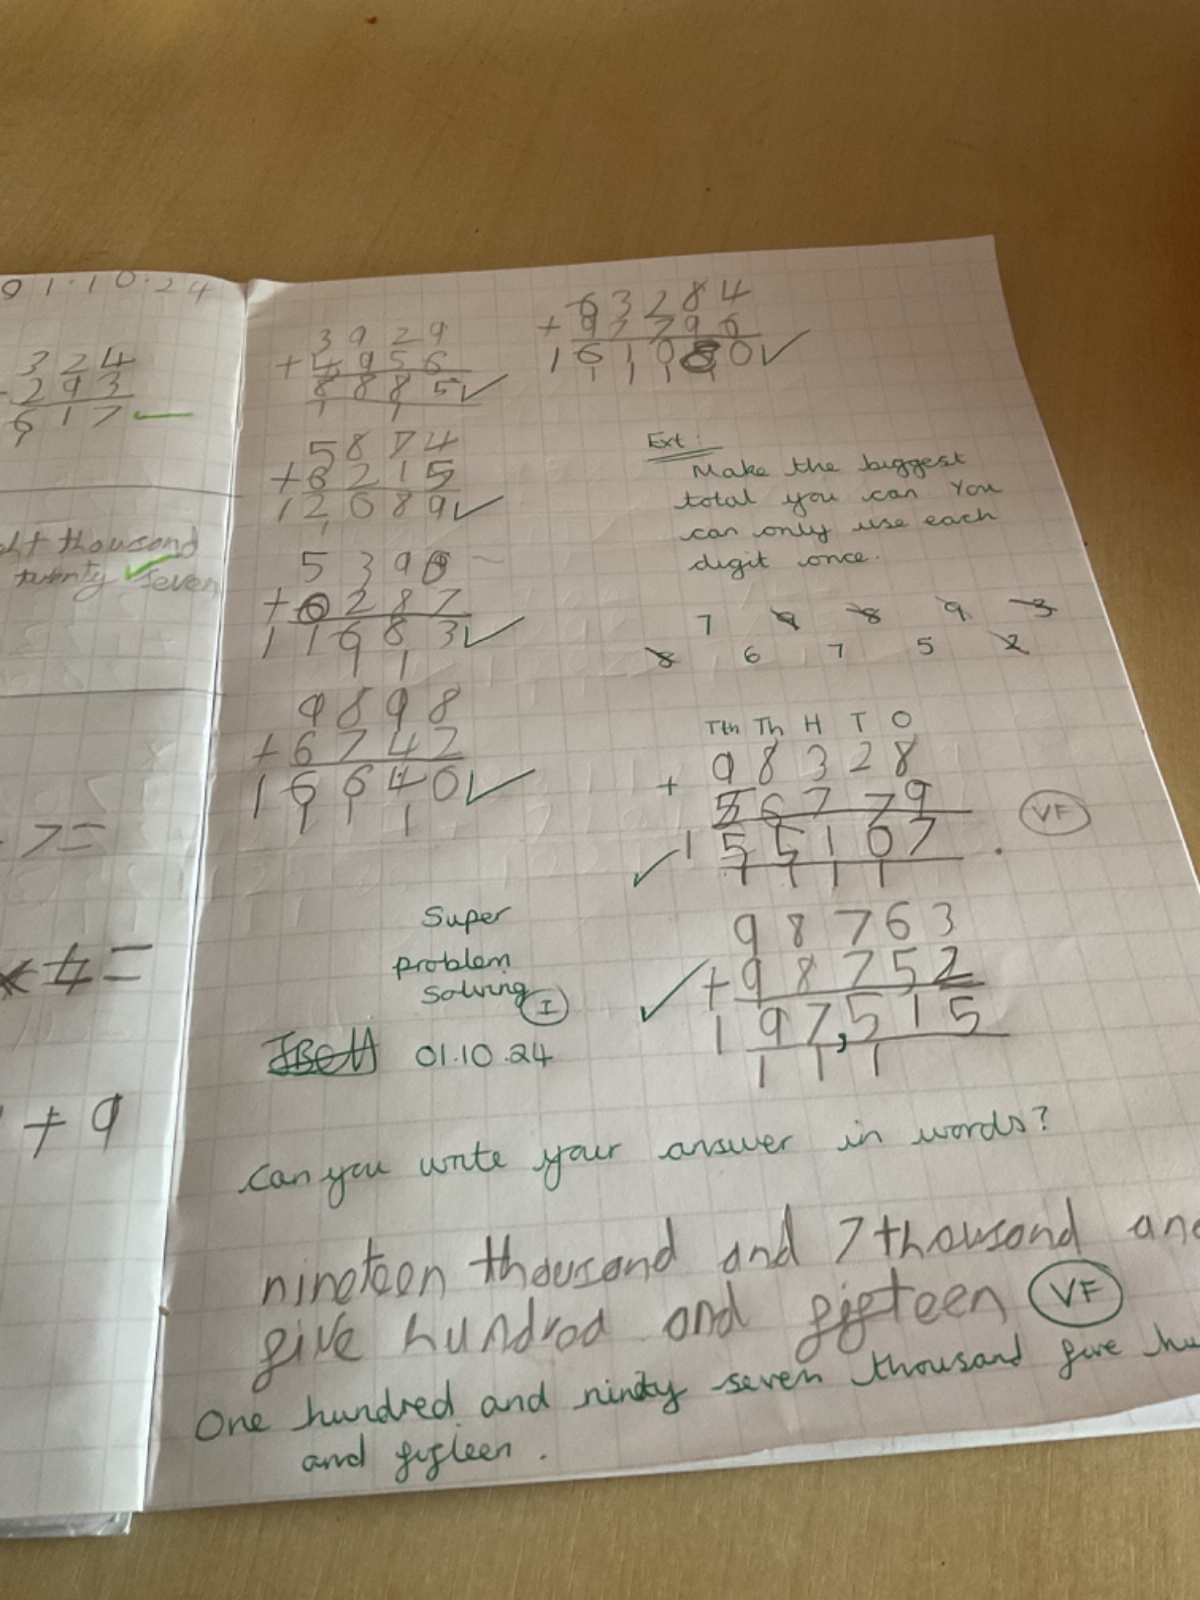 01.10.24
324
293
617
ht thousand
twenty seven
7=
4=
+9
3929
+4956
8885
1 1
5874
+6215
12089
1
5396
+6287
11683
1 1
9898
+6742
16640
1 1 1
63284
+97796
161080
1 1 1 1
Ext:
Make the biggest
total you can You
can only use each
digit once.
7 9 8 9 3
8 6 7 5 2
Tth Th H T O
98328
+
56779
155107
1 1 1 1
VF
98763
+98752
197,515
1 1 1
Super
problem
solving
I
01.10.24
Can you write your answer in words?
nineteen thousand and 7 thousand and
five hundred and fifteen VF
One hundred and ninety seven thousand five hu
and fifteen.